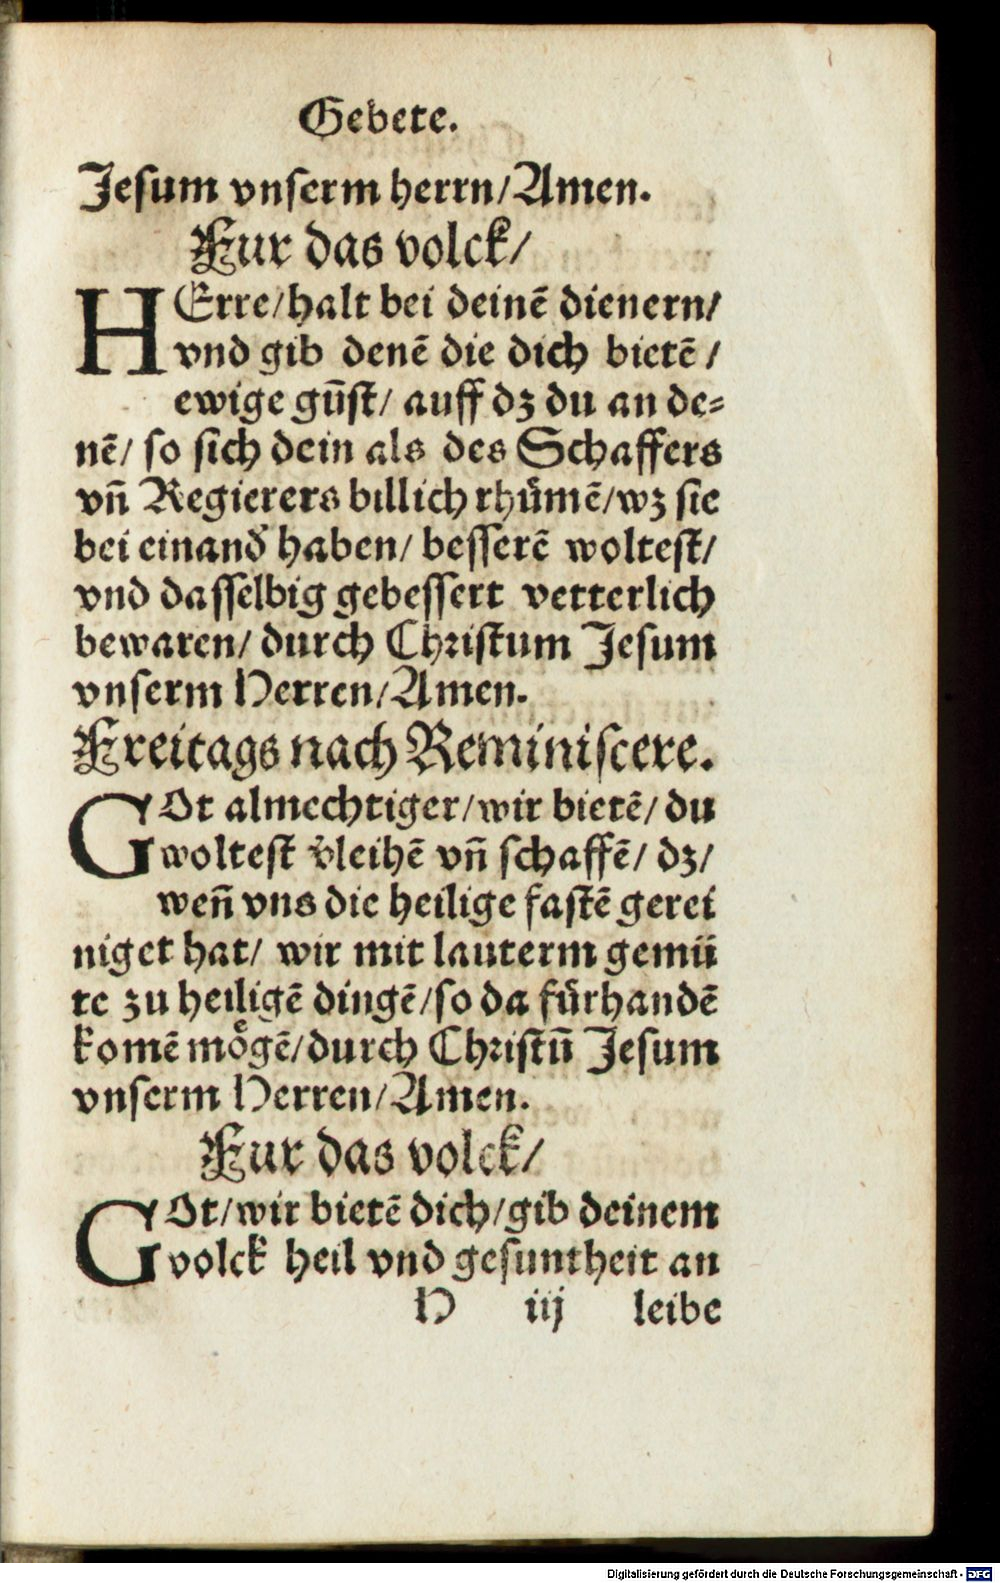 Gebete.
Jesum vnserm herrn/Amen.
Fur das volck/
HErre/halt bei deinē dienern/
vnd gib denē die dich bietē/
ewige gūst/ auff dz du an de⸗
nē/ so sich dein als des Schaffers
vñ Regierers billich rhümē/wz sie
bei einand' haben/ besserē woltest/
vnd dasselbig gebessert vetterlich
bewaren/ durch Christum Jesum
vnserm Herren/Amen.
Freitags nach Reminiscere.
GOt almechtiger/wir bietē/ du
woltest v'leihē vñ schaffē/ dz/
weñ vns die heilige fastē gerei
niget hat/ wir mit lauterm gemü
te zu heiligē dingē/so da fürhandē
komē moͤgē/durch Christū Jesum
vnserm Herren/Amen.
Fur das volck/
GOt/wir bietē dich/gib deinem
volck heil vnd gesuntheit an
H iij leibe
Digitalisierung gefördert durch die Deutsche Forschungsgemeinschaft - DFG